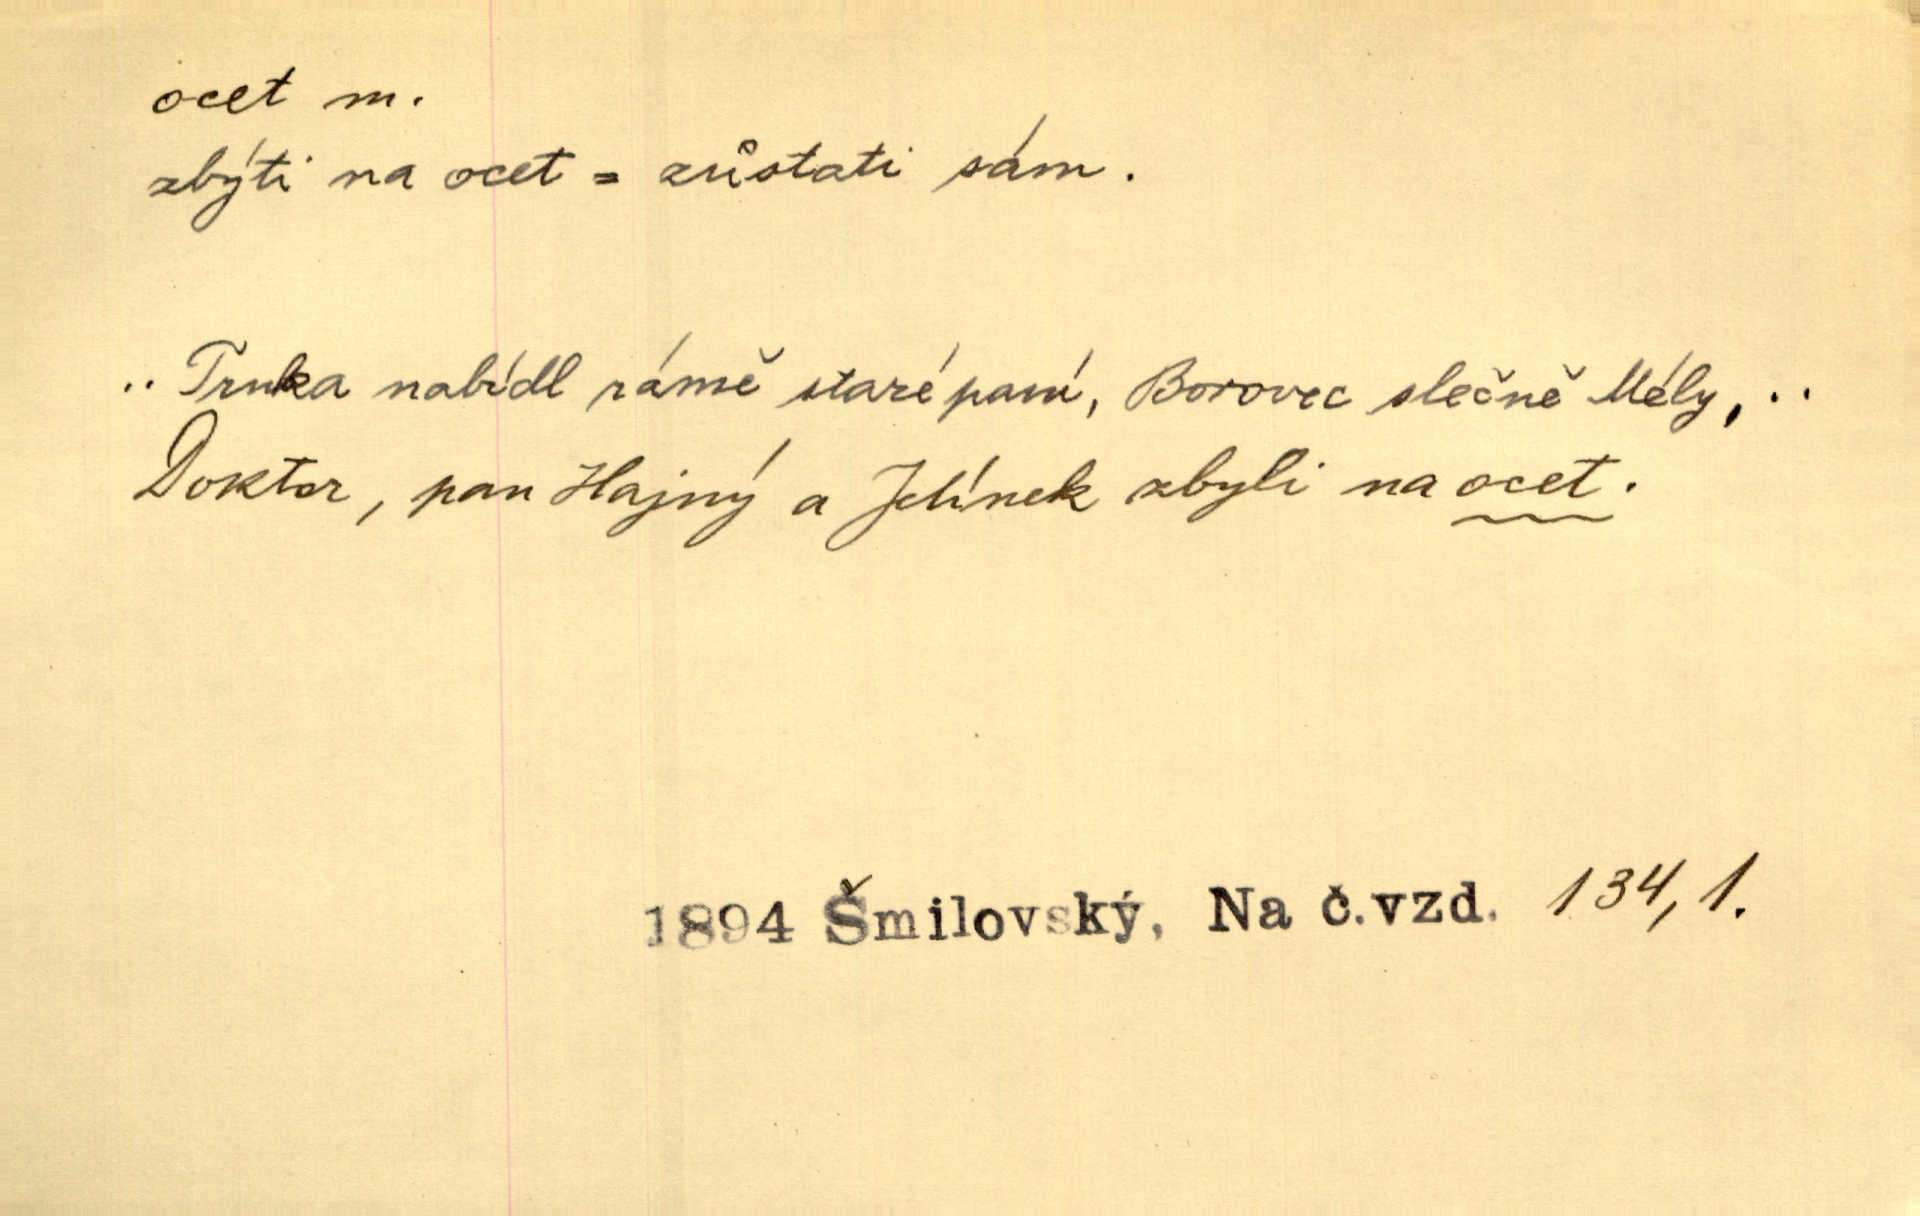 ocet m.
zbýti na ocet = zůstati sám.
.. Trnka nabídl rámě staré paní, Borovec slečně Mély, ..
Doktor, pan Hajný a Jelínek zbyli na ocet.
1894 Šmilovský, Na č.vzd. 134, 1.